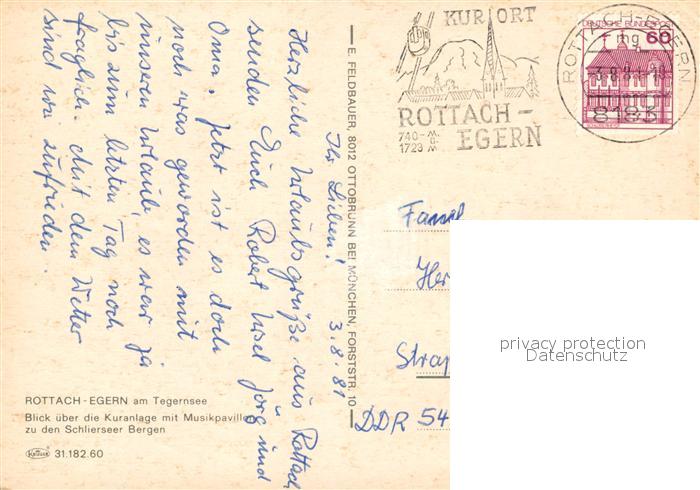 KURORT
ROTTACH-
EGERN
740-M.
Ü.
1723 M
ROTTACH-EGERN
8183
DEUTSCHE BUNDESPOST
60
Ihr Lieben! 3.8.81
Herzliche Urlaubsgrüße aus Rottach
senden Euch Robert Ursel Jörg und
Oma. Jetzt ist es doch
noch was geworden mit
unseren Urlaub, es war ja
bis zum letzten Tag noch
fraglich. Mit dem Wetter
sind wir zufrieden.
E. FELDBAUER, 8012 OTTOBRUNN BEI MÜNCHEN, FORSTSTR. 10
Her
DDR 54
privacy protection
Datenschutz
ROTTACH-EGERN am Tegernsee
Blick über die Kuranlage mit Musikpavillon
zu den Schlierseer Bergen
Krüger 31.182.60